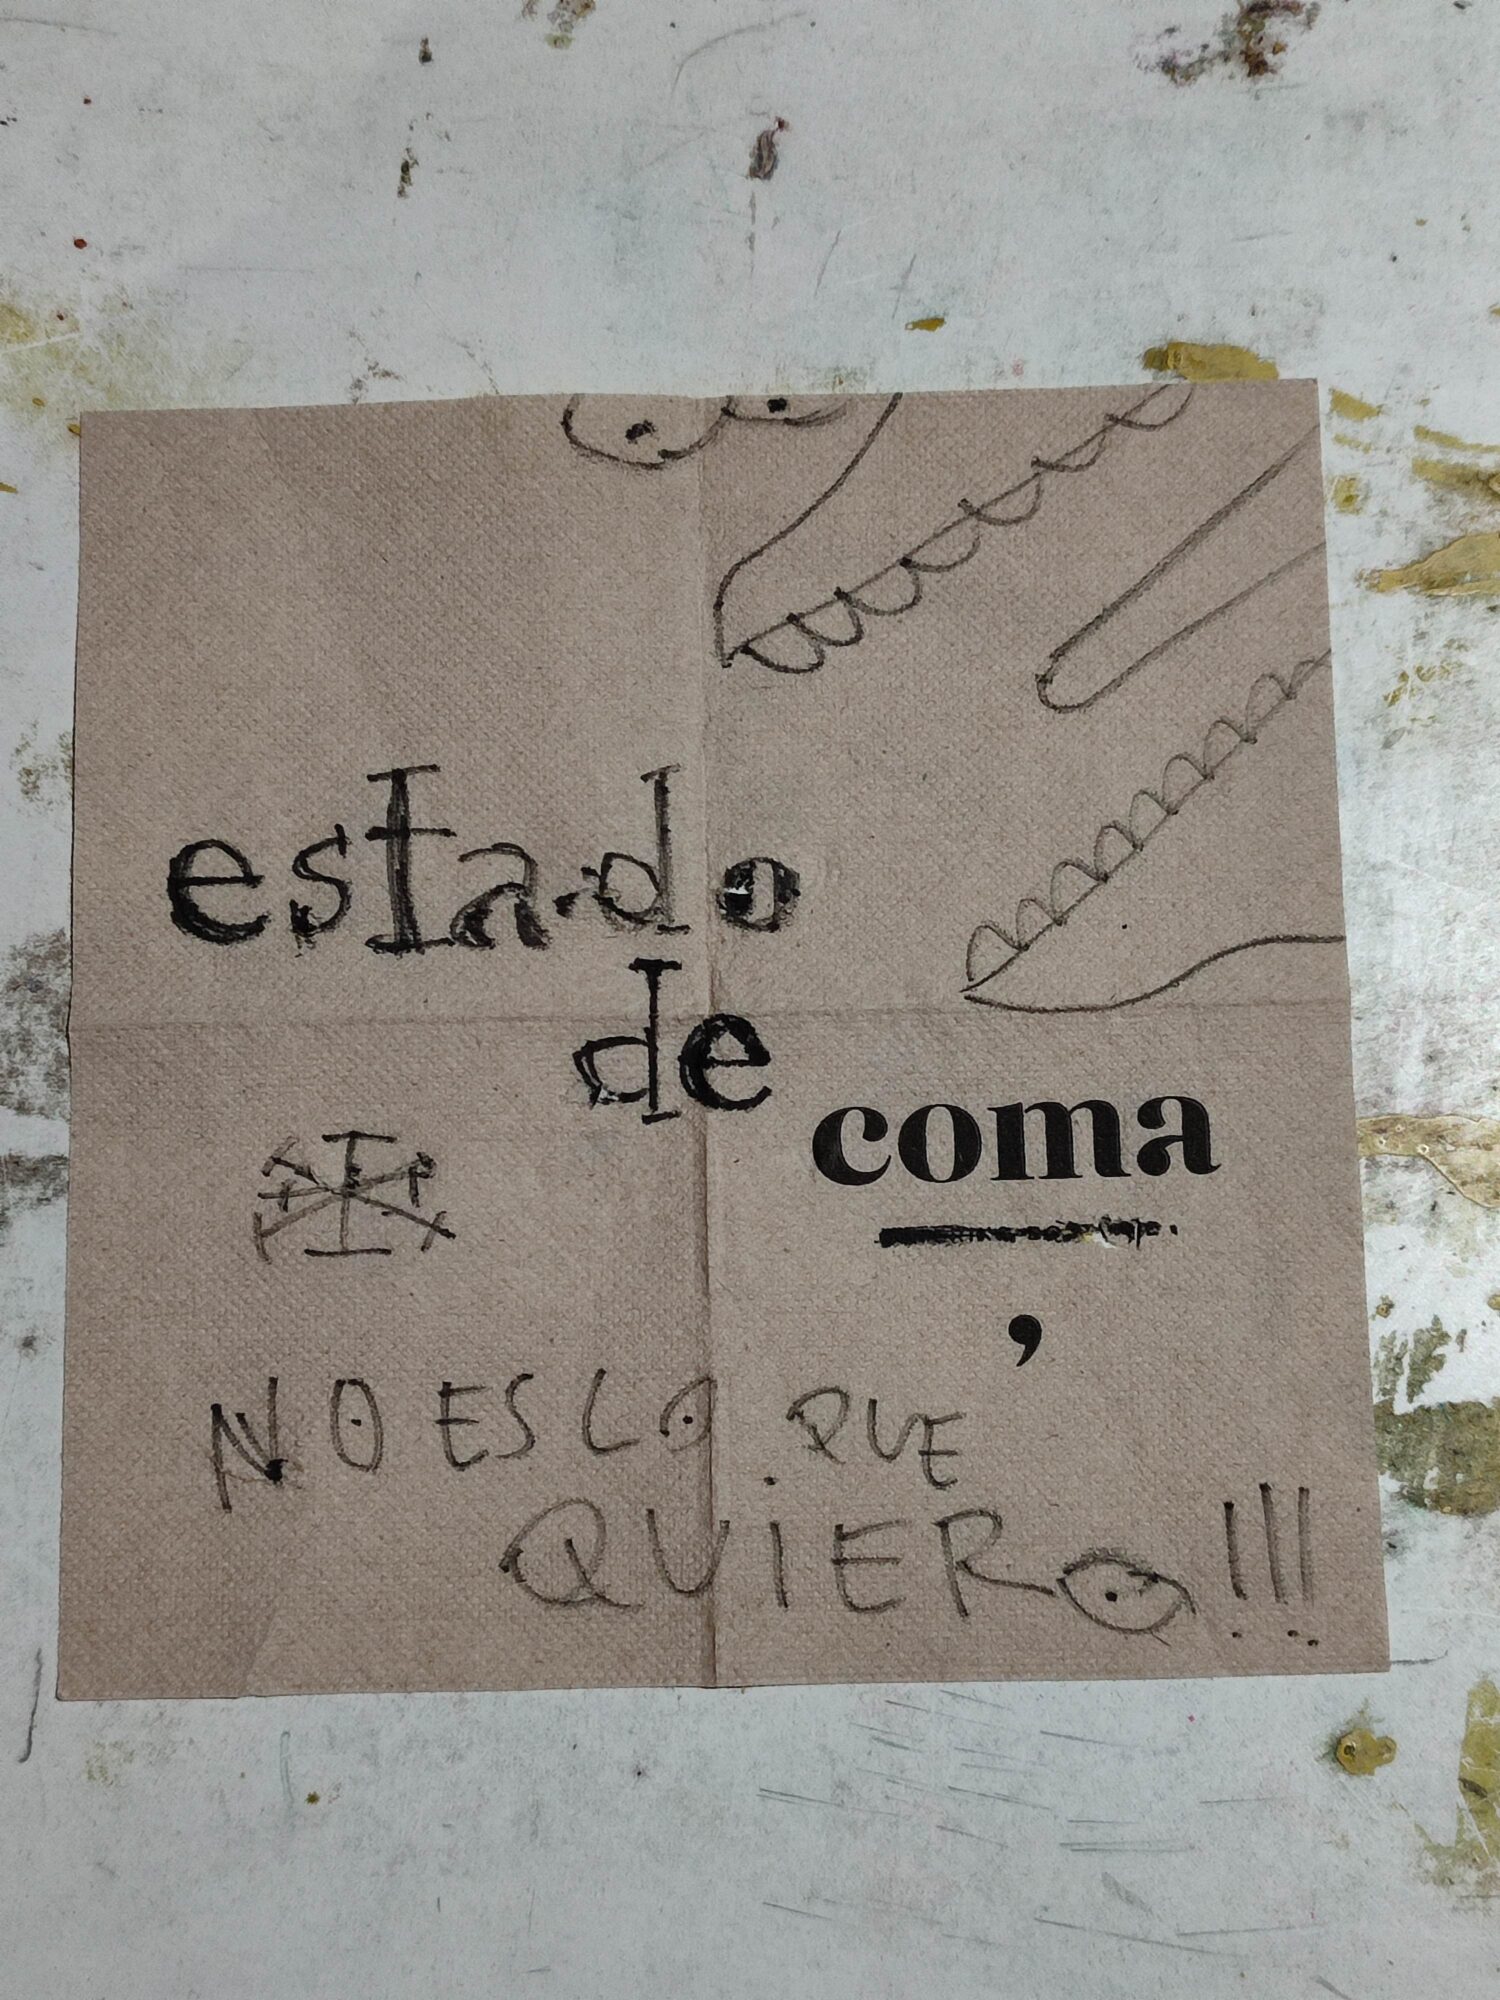 estado
de
coma
,
NO ES LO QUE
QUiERO!!!